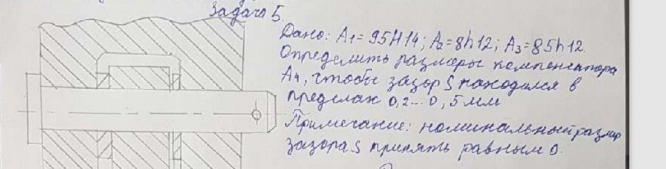 Задача 5
Дано: A1=95H14; A2=8h12; A3=85h12
Определить размеры компенсатора
A4, чтобы зазор S находился в
пределах 0,2...0,5мм
Примечание: номинальный размер
зазора S принять равным 0.